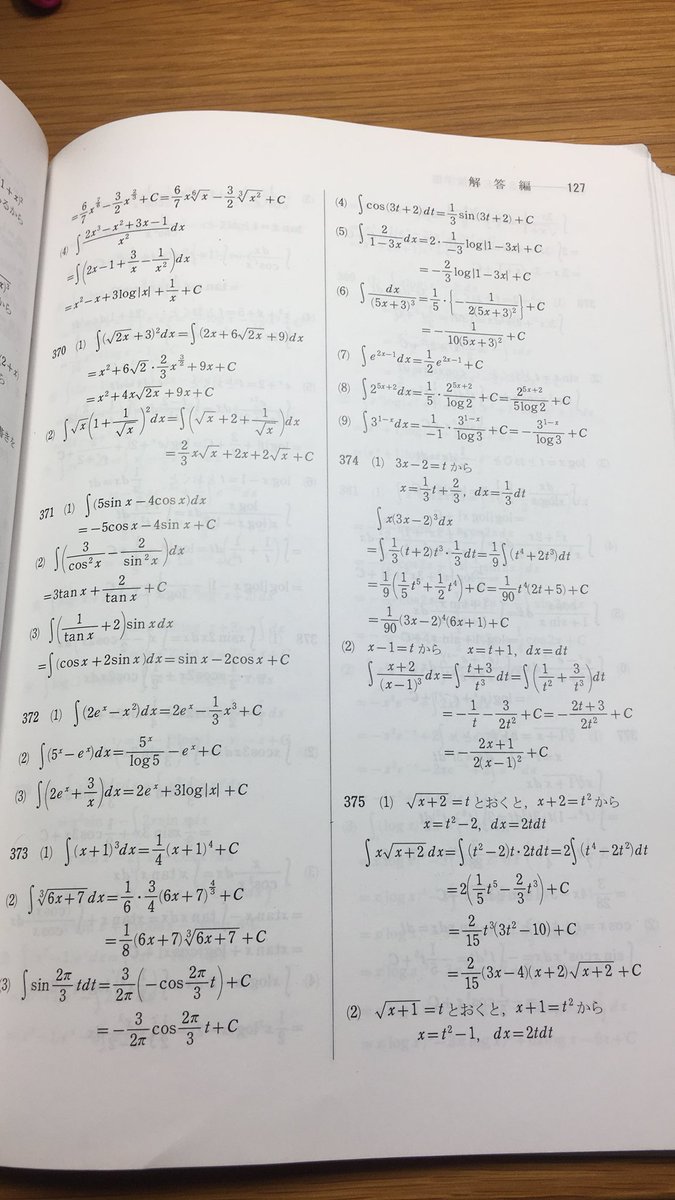 解答編 127
=6/7 x^{7/6} − 3/2 x^{2/3} + C = 6/7 x ⁶√x − 3/2 ³√x² + C
(4) ∫ (2x³−x²+3x−1)/x² dx
=∫(2x−1+3/x−1/x²)dx
=x²−x+3log|x|+1/x+C
370 (1) ∫(√2x+3)²dx=∫(2x+6√2x+9)dx
=x²+6√2·2/3 x^{3/2}+9x+C
=x²+4x√2x+9x+C
(2) ∫√x(1+1/√x)²dx=∫(√x+2+1/√x)dx
=2/3 x√x+2x+2√x+C
371 (1) ∫(5sin x−4cos x)dx
=−5cos x−4sin x+C
(2) ∫(3/cos²x−2/sin²x)dx
=3tan x+2/tan x+C
(3) ∫(1/tan x+2)sin x dx
=∫(cos x+2sin x)dx=sin x−2cos x+C
372 (1) ∫(2eˣ−x²)dx=2eˣ−1/3 x³+C
(2) ∫(5ˣ−eˣ)dx=5ˣ/log5−eˣ+C
(3) ∫(2eˣ+3/x)dx=2eˣ+3log|x|+C
373 (1) ∫(x+1)³dx=1/4(x+1)⁴+C
(2) ∫³√(6x+7)dx=1/6·3/4(6x+7)^{4/3}+C
=1/8(6x+7)³√(6x+7)+C
(3) ∫sin 2π/3 tdt=3/2π(−cos 2π/3 t)+C
=−3/2π cos 2π/3 t+C
(4) ∫cos(3t+2)dt=1/3 sin(3t+2)+C
(5) ∫2/(1−3x)dx=2·1/−3 log|1−3x|+C
=−2/3 log|1−3x|+C
(6) ∫dx/(5x+3)³=1/5·{−1/2(5x+3)²}+C
=−1/10(5x+3)²+C
(7) ∫e^{2x−1}dx=1/2 e^{2x−1}+C
(8) ∫2^{5x+2}dx=1/5·2^{5x+2}/log2+C=2^{5x+2}/5log2+C
(9) ∫3^{1−x}dx=1/−1·3^{1−x}/log3+C=−3^{1−x}/log3+C
374 (1) 3x−2=t から
x=1/3 t+2/3, dx=1/3 dt
∫x(3x−2)³dx
=∫1/3(t+2)t³·1/3 dt=1/9∫(t⁴+2t³)dt
=1/9(1/5 t⁵+1/2 t⁴)+C=1/90 t⁴(2t+5)+C
=1/90(3x−2)⁴(6x+1)+C
(2) x−1=t から x=t+1, dx=dt
∫(x+2)/(x−1)³dx=∫(t+3)/t³dt=∫(1/t²+3/t³)dt
=−1/t−3/2t²+C=−(2t+3)/2t²+C
=−(2x+1)/2(x−1)²+C
375 (1) √(x+2)=t とおくと, x+2=t² から
x=t²−2, dx=2tdt
∫x√(x+2)dx=∫(t²−2)t·2tdt=2∫(t⁴−2t²)dt
=2(1/5 t⁵−2/3 t³)+C
=2/15 t³(3t²−10)+C
=2/15(3x−4)(x+2)√(x+2)+C
(2) √(x+1)=t とおくと, x+1=t² から
x=t²−1, dx=2tdt